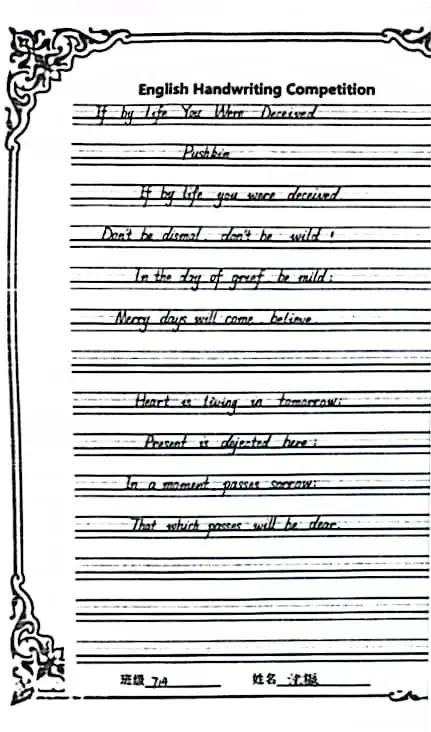 English Handwriting Competition
If by life You Were Deceived
Pushkin
If by life you were deceived.
Don't be dismal. don't be wild !
In the day of greef. be mild;
Merry days will come. believe.
Heart is living in tomorrow;
Present is dejected here;
In a moment. passes sorrow;
That which passes will be dear.
班级 714 姓名 沈